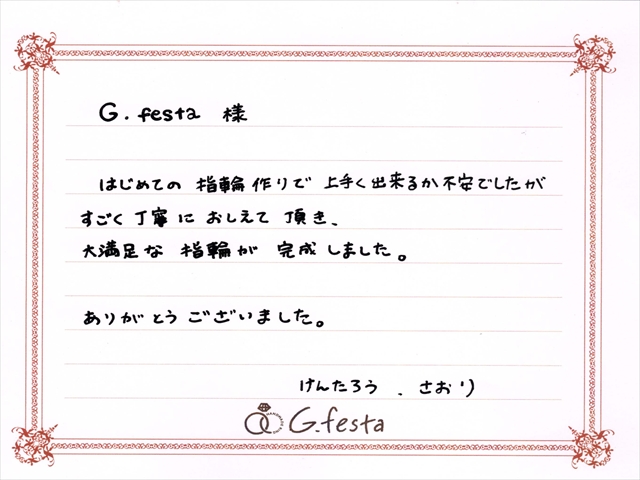 G.festa 様
はじめての 指輪作りで 上手く出来るか不安でしたが
すごく丁寧に おしえて 頂き、
大満足な 指輪が 完成しました。
ありがとう ございました。
けんたろう . さおり
G.festa